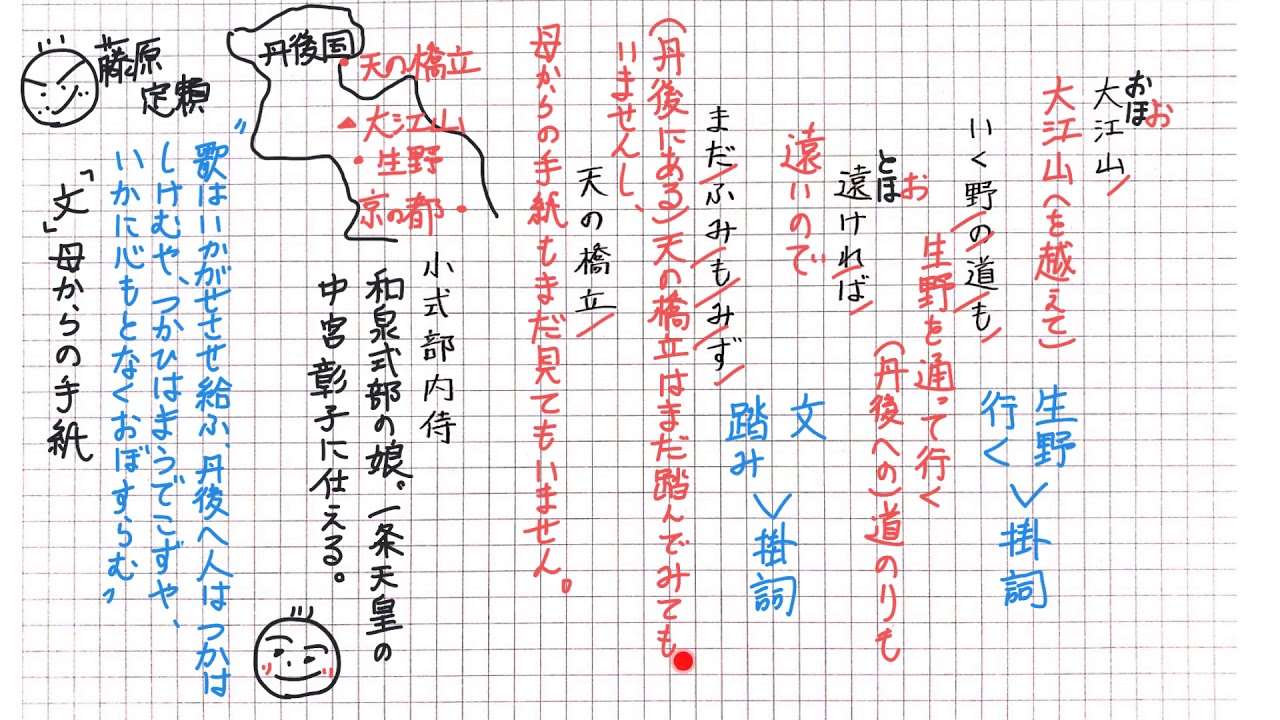 おほ
お
大江山
大江山（を越えて）
生野
行く
掛詞
いく野の道も
生野を通って行く
（丹後への）道のりも
とほ
お
遠ければ
遠いので
文
踏み
掛詞
まだふみもみず
（丹後にある）天の橋立はまだ踏んでみても
いませんし、
天の橋立
母からの手紙もまだ見てもいません。
小式部内侍
和泉式部の娘。一条天皇の
中宮彰子に仕える。
丹後国
天の橋立
大江山
生野
京の都
藤原
定頼
〝歌はいかがせさせ給ふ、丹後へ人はつかは
しけむや、つかひはまうでこずや、
いかに心もとなくおぼすらむ〟
「文」母からの手紙